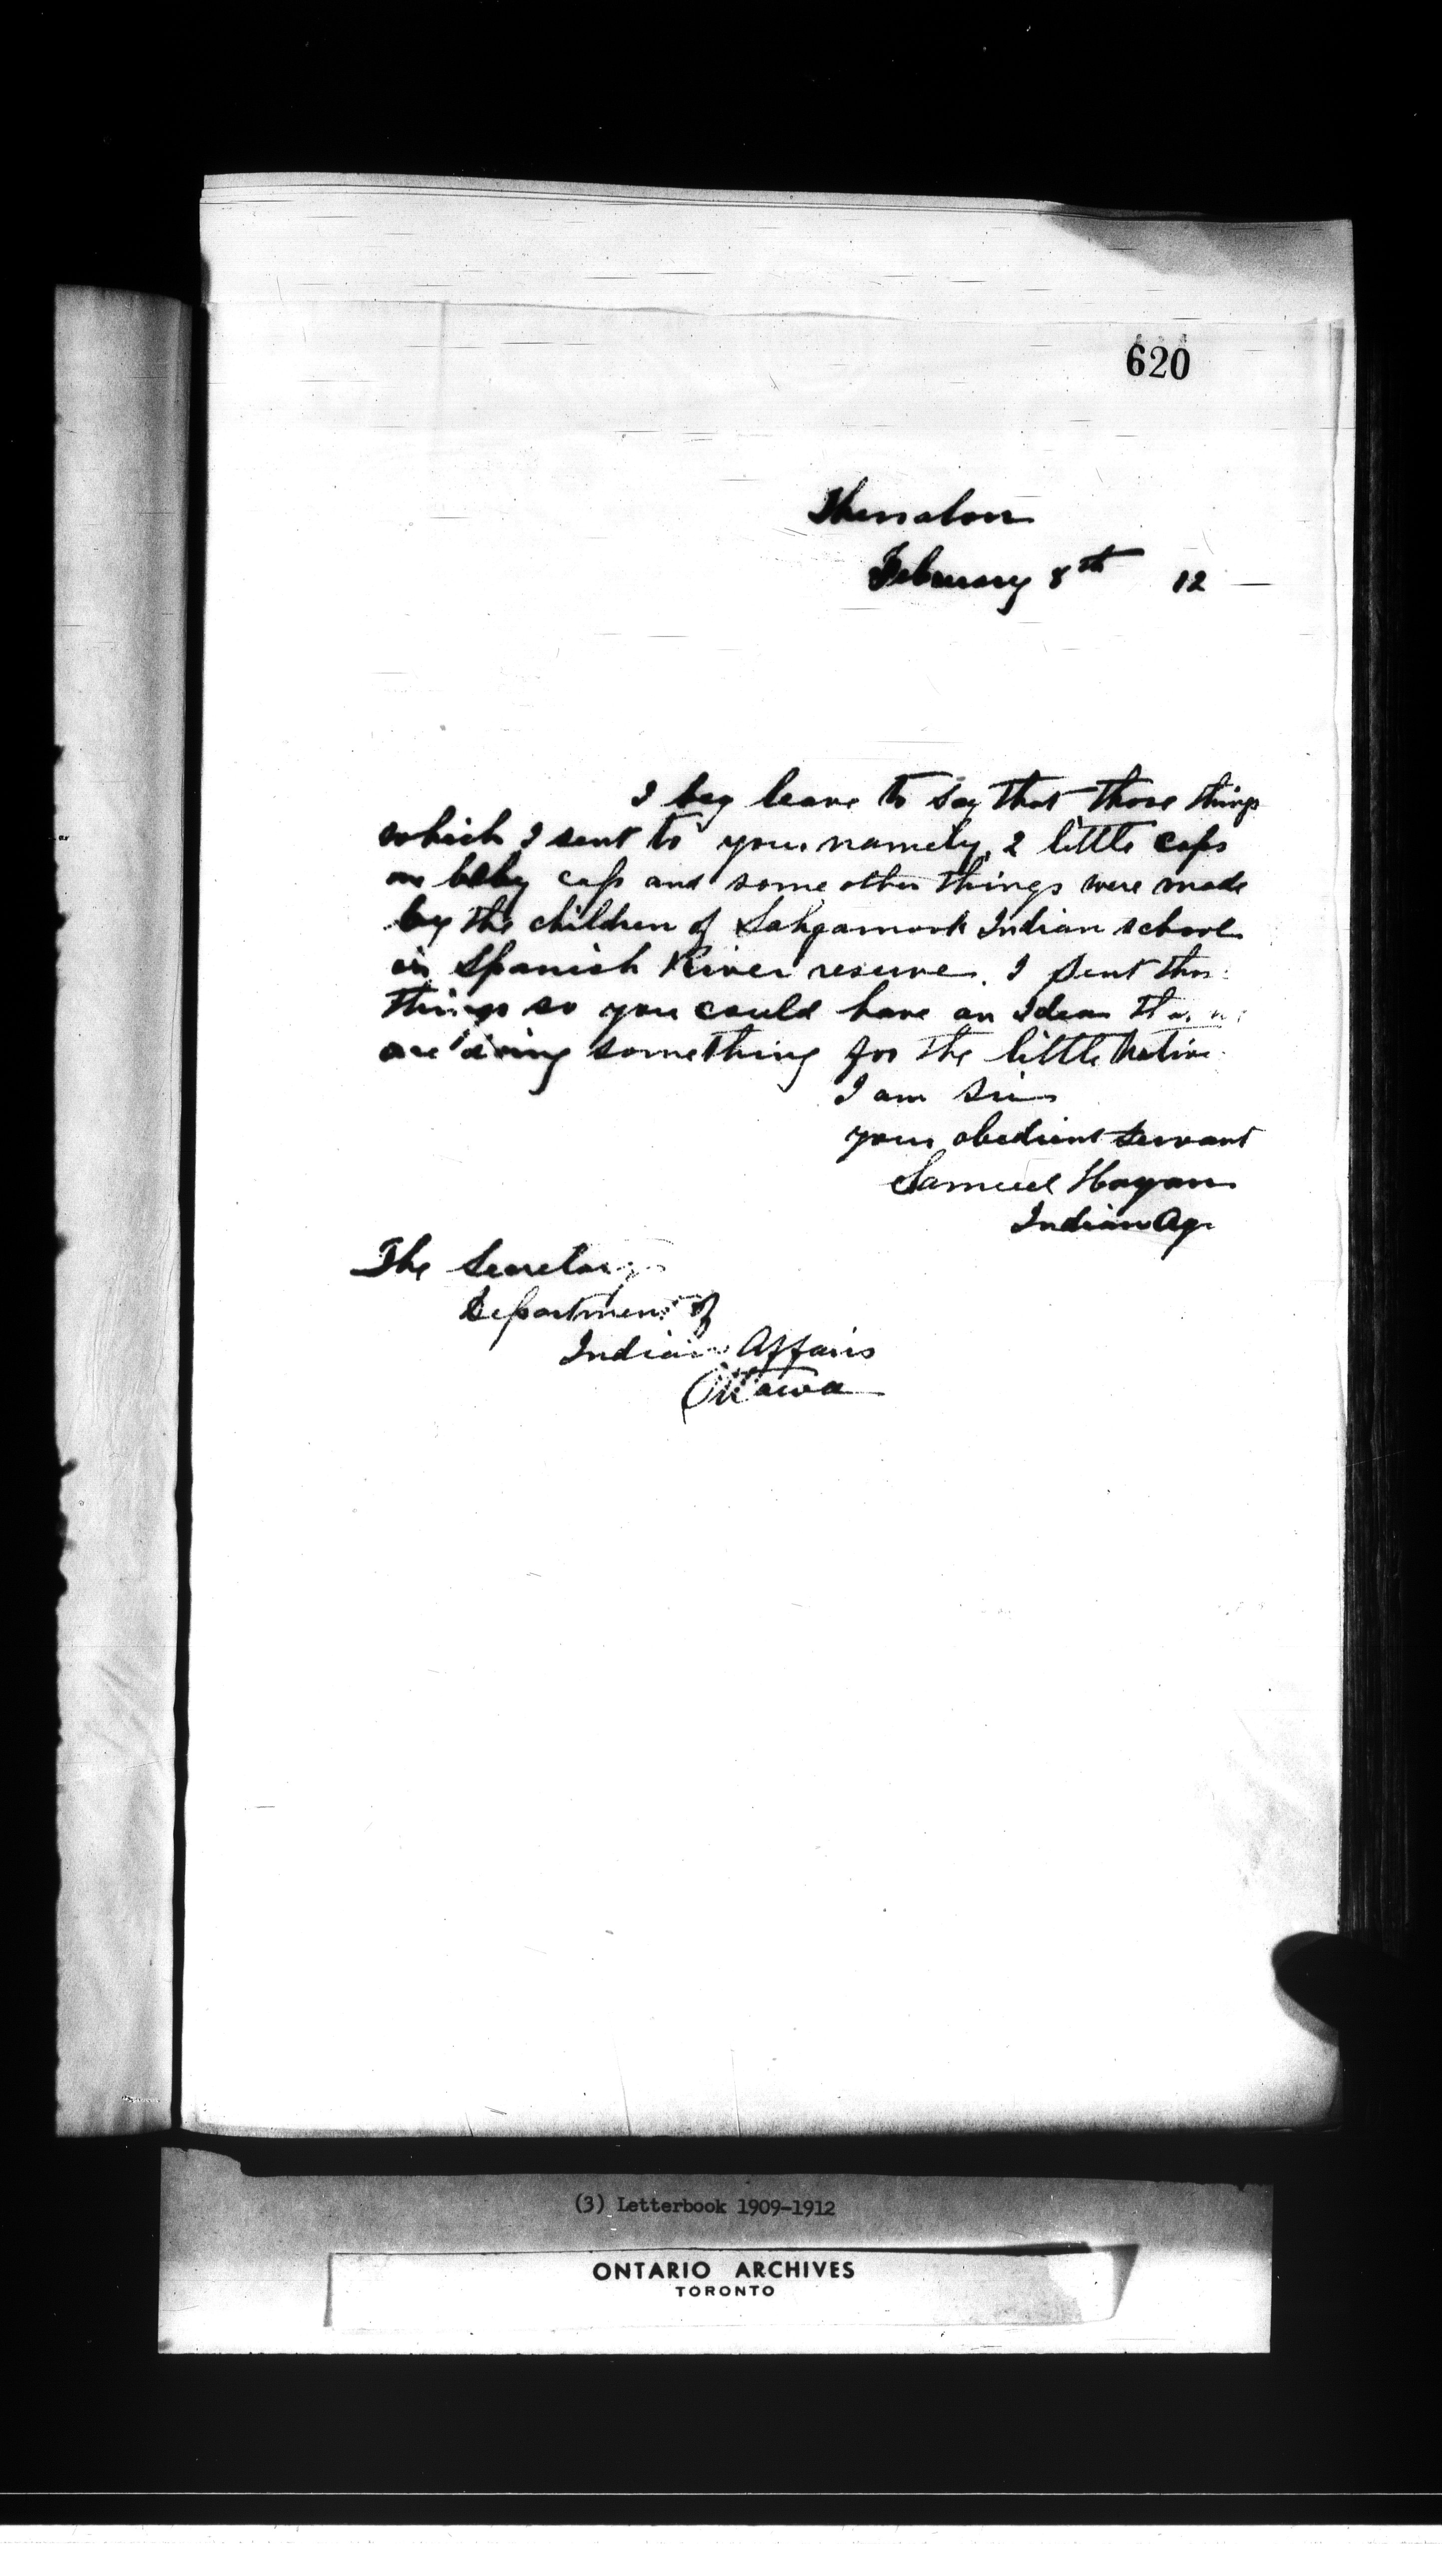 620
Thessalon
February 8th 12
I beg leave to say that those things
which I sent to you namely, 2 little caps
or baby caps and some other things were made
by the children of Sahgamook Indian school
in Spanish River reserve. I sent
things so you could have an Idea that we
are doing something for the little native
I am Sir
your obedient servant
Samuel Hagan
Indian Ag
The Secretary
Department of
Indian Affairs
Ottawa
(3) Letterbook 1909-1912
ONTARIO ARCHIVES
TORONTO